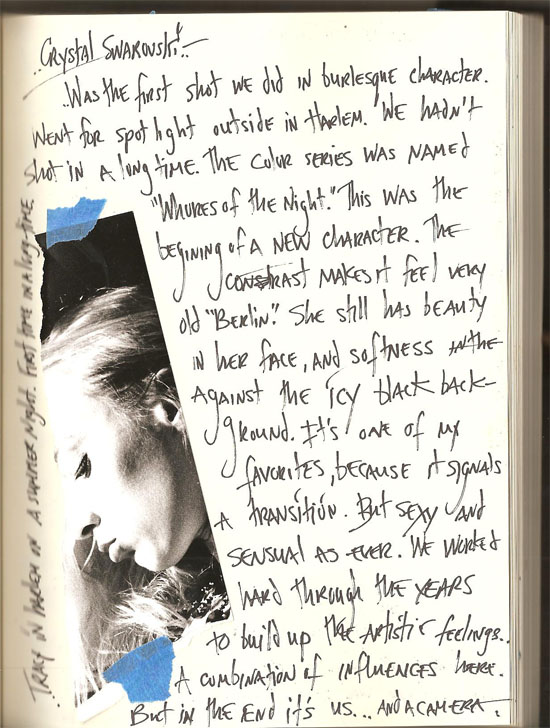 "Crystal Swarovski"
..Was the first shot we did in burlesque character.
Went for spot light outside in Harlem. We hadn't
shot in a long time. The color series was named
"Whores of the Night." This was the
begining of a new character. The
contrast makes it feel very
old "Berlin." She still has beauty
in her face, and softness in the
against the icy black back-
ground. It's one of my
favorites, because it signals
a transition. But sexy and
sensual as ever. We worked
hard through the years
to build up the artistic feelings..
A combination of influences here.
But in the end it's us... and a camera.
Tracy in Harlem on a summer night. First time in a long time.